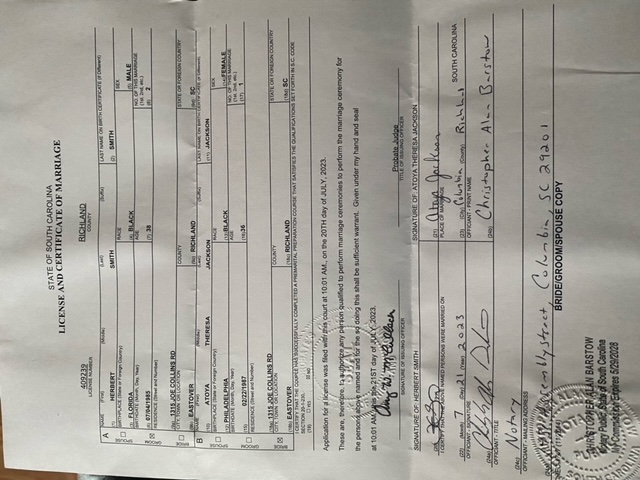 STATE OF SOUTH CAROLINA
LICENSE AND CERTIFICATE OF MARRIAGE
609239
LICENSE NUMBER
RICHLAND
COUNTY
A
NAME (First) (Middle) (Last) (Suffix) LAST NAME ON BIRTH CERTIFICATE (If Different)
HERBERT SMITH (2) SMITH
BIRTHPLACE (State or Foreign Country) RACE SEX
FLORIDA (4) BLACK (5) MALE
BIRTHDATE (Month, Day, Year) AGE NO. OF THIS MARRIAGE
07/04/1985 (7) 38 (8) 2
RESIDENCE (Street and Number)
1315 JOE COLLINS RD
CITY, TOWN OR LOCATION COUNTY STATE OR FOREIGN COUNTRY
EASTOVER RICHLAND SC
B
NAME (First) (Middle) (Last) (Suffix) LAST NAME ON BIRTH CERTIFICATE (If Different)
ATOYA THERESA JACKSON (11) JACKSON
BIRTHPLACE (State or Foreign Country) RACE SEX
PHILADELPHIA BLACK FEMALE
BIRTHDATE (Month, Day, Year) AGE NO. OF THIS MARRIAGE
02/22/1987 36 1
RESIDENCE (Street and Number)
1315 JOE COLLINS RD
CITY, TOWN OR LOCATION COUNTY STATE OR FOREIGN COUNTRY
EASTOVER RICHLAND SC
I CERTIFY THAT THE COUPLE HAS SUCCESSFULLY COMPLETED A PREMARITAL PREPARATION COURSE THAT SATISFIES THE QUALIFICATIONS SET FORTH IN S.C. CODE
Application for a license was filed with this court at 10:01 AM, on the 20TH day of JULY, 2023.
These are, therefore, to authorize any person qualified to perform marriage ceremonies to perform the marriage ceremony for
the persons above named and for the so doing this shall be sufficient warrant. Given under my hand and seal
at 10:01 AM the 21ST day of JULY, 2023.
Amy W. McCulloch Probate Judge
SIGNATURE OF ISSUING OFFICER TITLE OF ISSUING OFFICER
SIGNATURE OF HERBERT SMITH SIGNATURE OF ATOYA THERESA JACKSON
Atoya Jackson
I CERTIFY THAT THE ABOVE NAMED PERSONS WERE MARRIED ON PLACE OF MARRIAGE
(Month) 7 (Day) 21 (Year) 2023 (City) Columbia (County) Richland SOUTH CAROLINA
OFFICIANT - SIGNATURE OFFICIANT - PRINT NAME
Christopher Alan Barstow
OFFICIANT - TITLE
Notary
OFFICIANT - MAILING ADDRESS
street, Columbia, SC 29201
BRIDE/GROOM/SPOUSE COPY
CHRISTOPHER ALAN BARSTOW
Notary Public, State of South Carolina
My Commission Expires